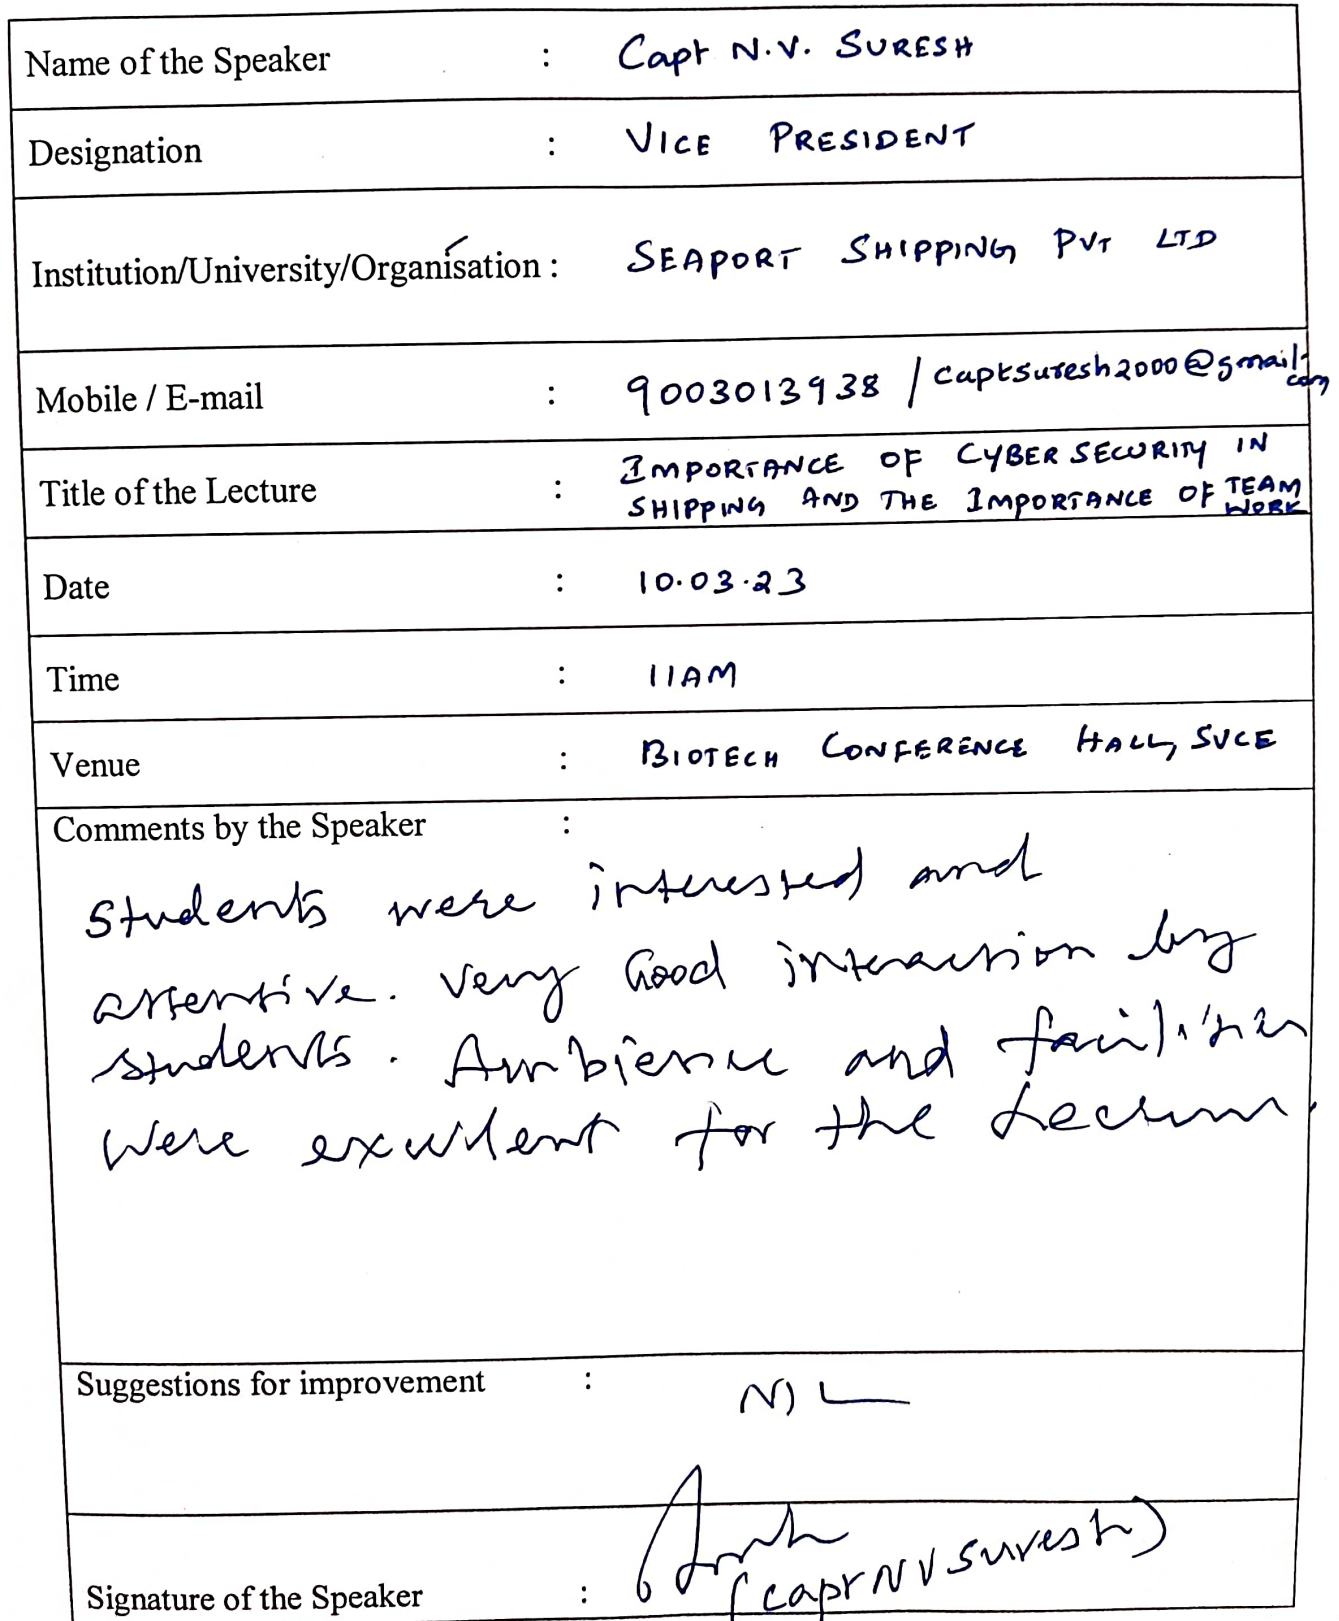 Name of the Speaker : Capt N.V. SURESH
Designation : VICE PRESIDENT
Institution/University/Organisation : SEAPORT SHIPPING PVT LTD
Mobile / E-mail : 9003013938 / captsuresh2000@gmail.
com
Title of the Lecture : IMPORTANCE OF CYBER SECURITY IN
SHIPPING AND THE IMPORTANCE OF TEAM
WORK
Date : 10.03.23
Time : 11AM
Venue : BIOTECH CONFERENCE HALL, SVCE
Comments by the Speaker :
Students were interested and
attentive. Very Good interaction by
students. Ambience and facilities
were excellent for the Lecture.
Suggestions for improvement : NIL
Signature of the Speaker : (Capt N V Suresh)